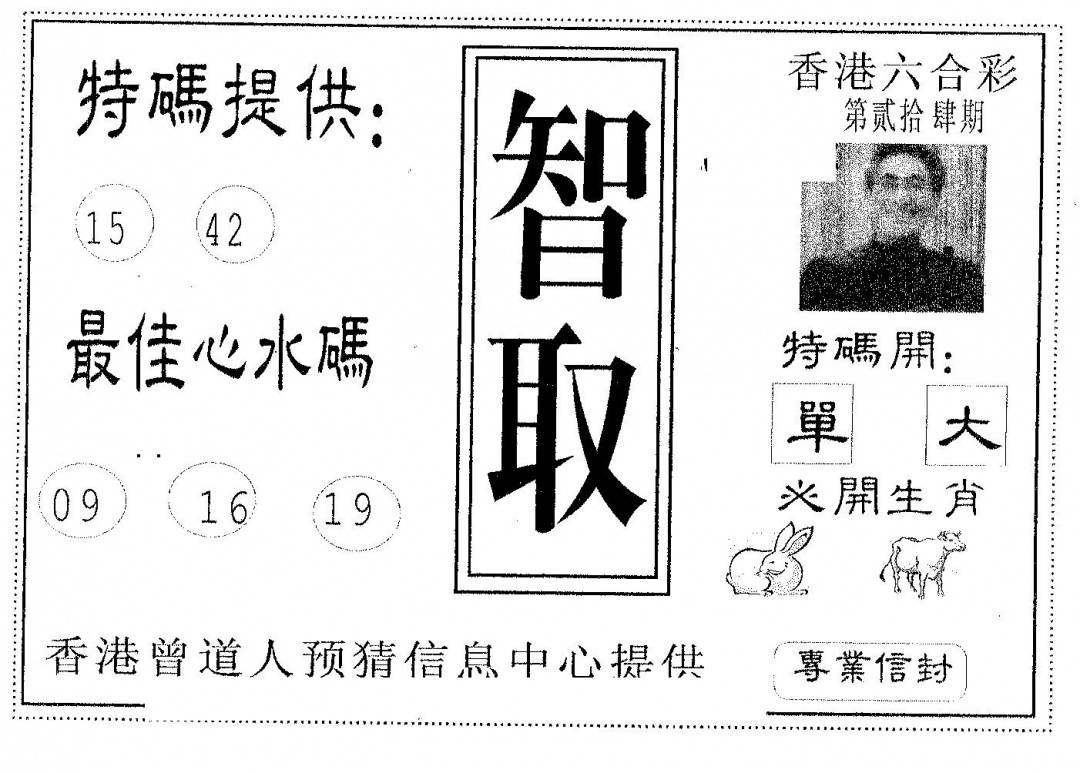 特碼提供：
15 42
最佳心水碼
09 16 19
智取
香港六合彩
第贰拾肆期
特碼開：
單 大
必開生肖
香港曾道人预猜信息中心提供
專業信封